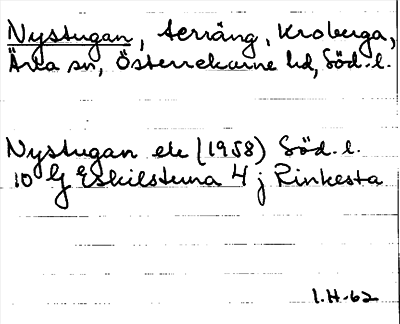 Nystugan, terräng, Kroberga,
Ärla sn, Österrekarne hd, Söd. l.
Nystugan ek (1958) Söd. l.
10 G Eskilstuna 4 j Rinkesta
I.H-62